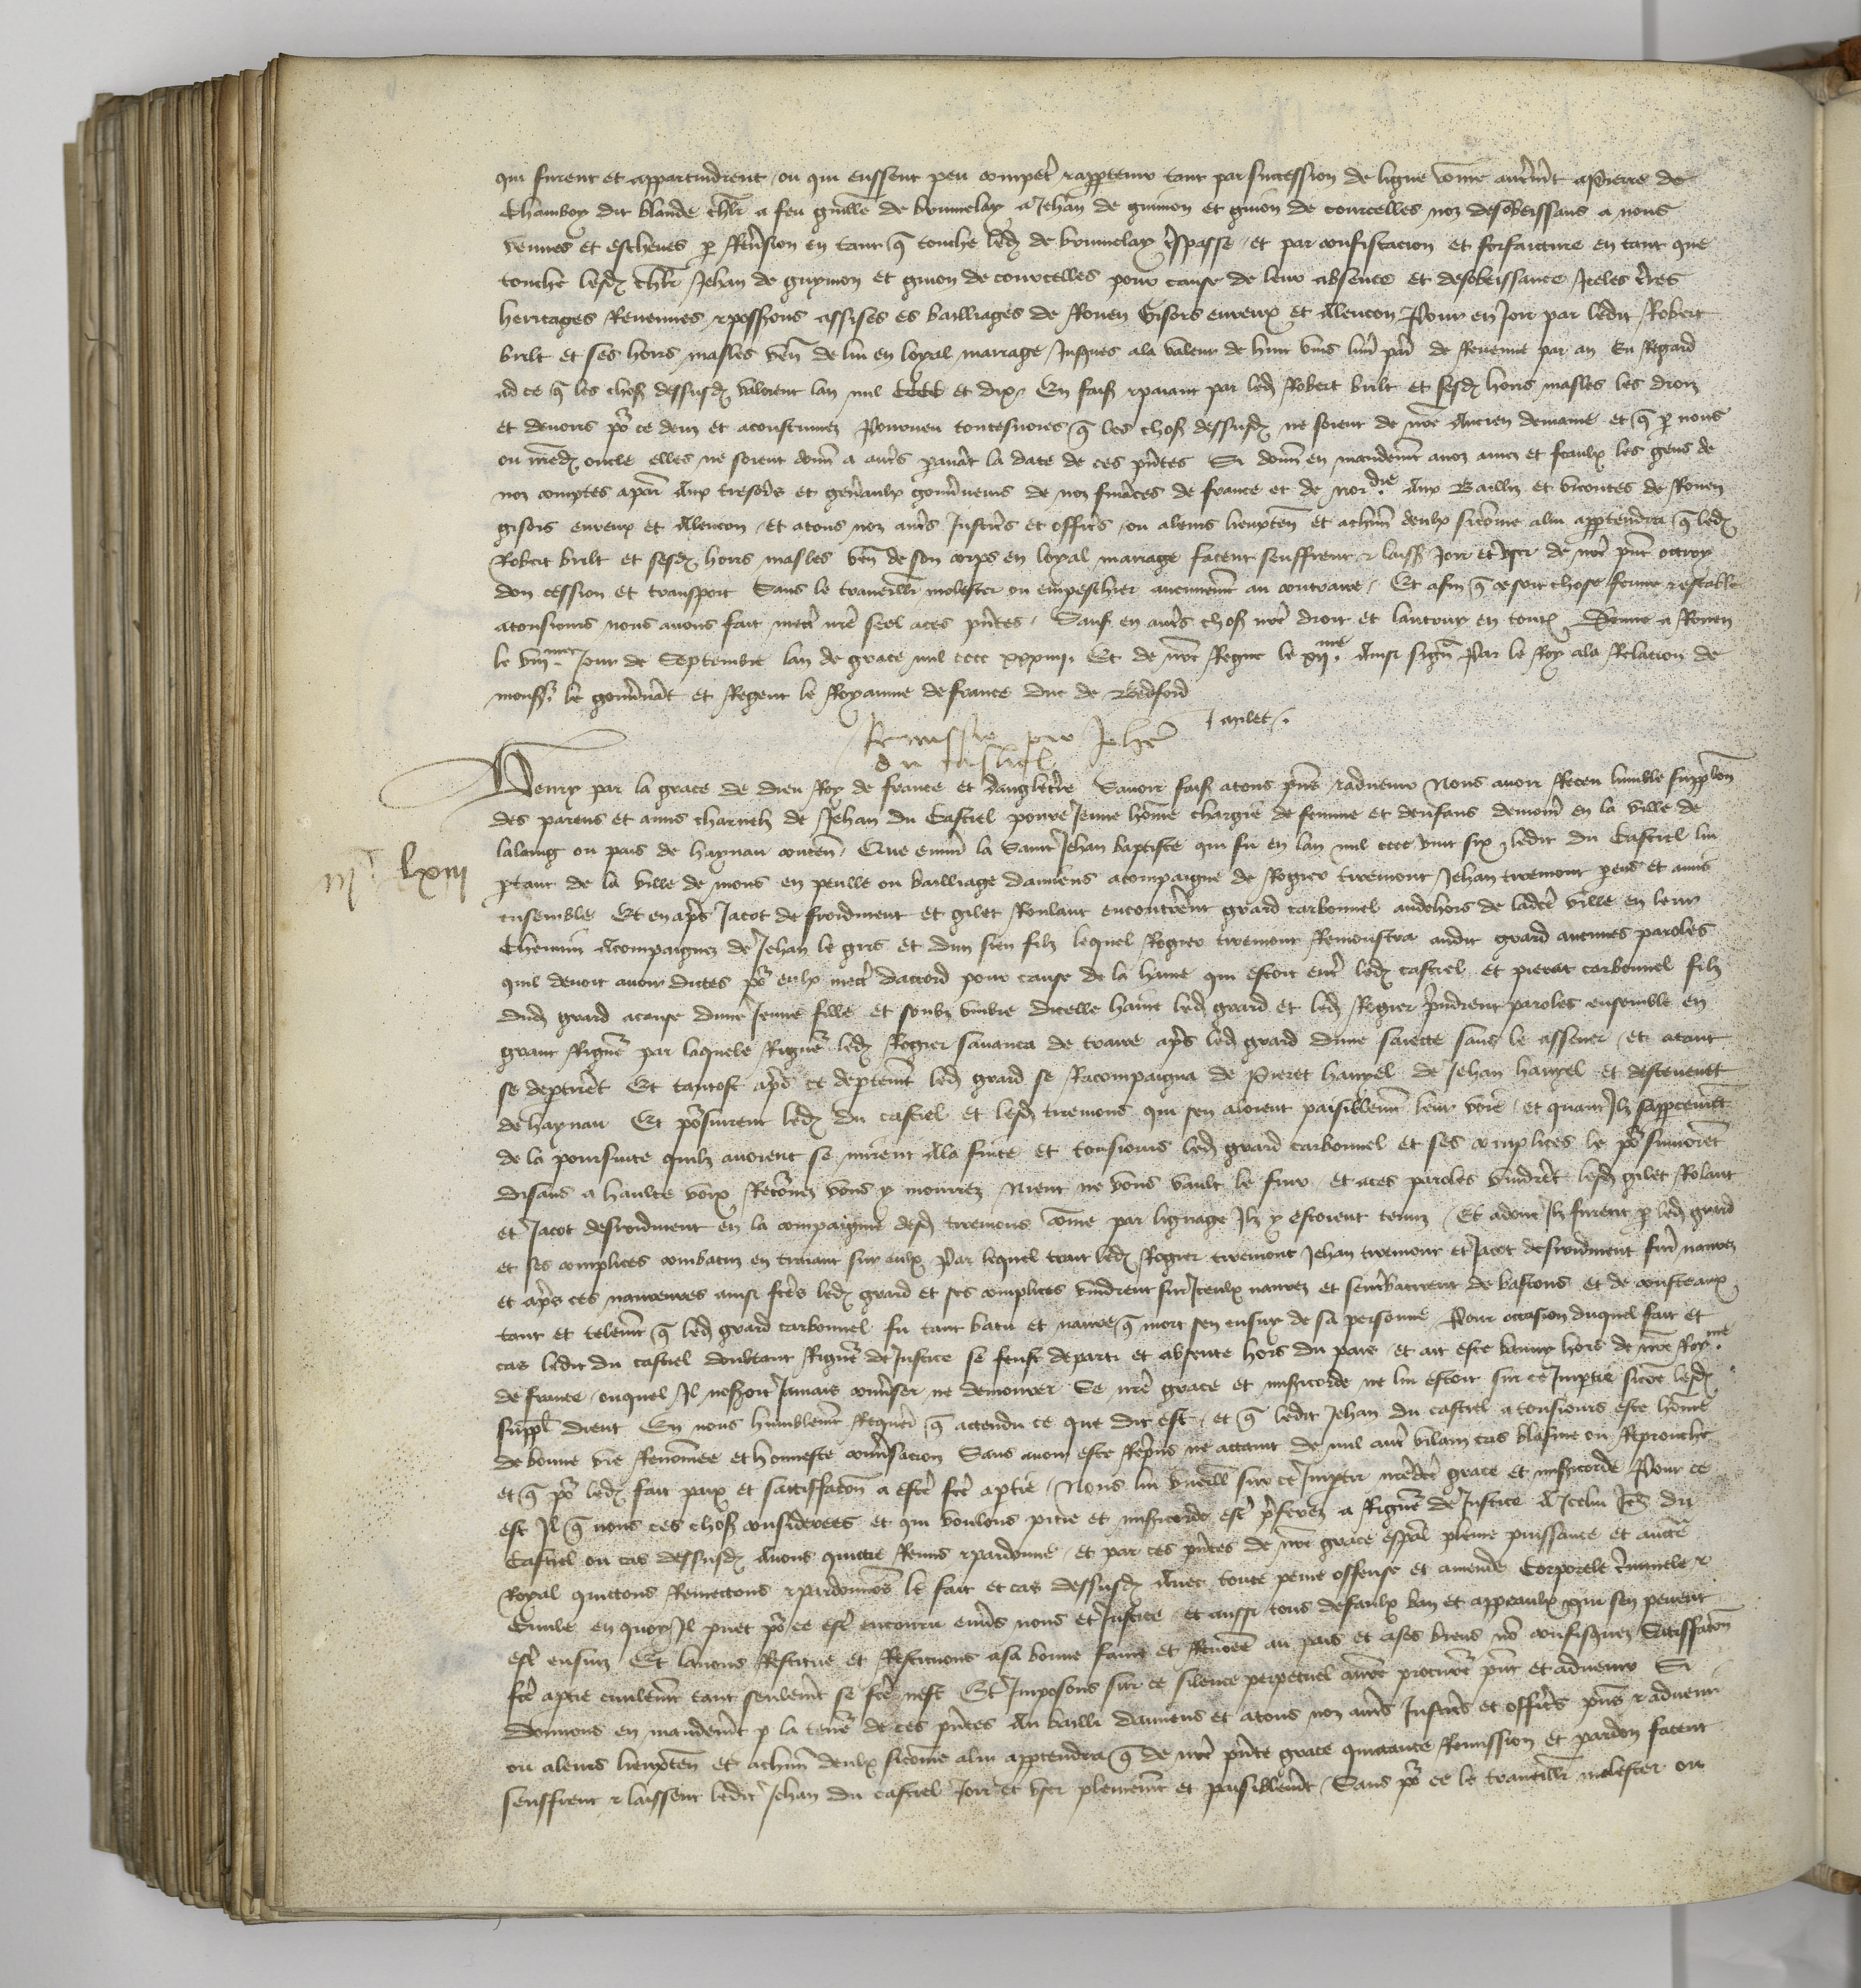 qui furent et appartindrent ou qui eussent peu compet' & appartenir tant par succession de ligne cōme autremt a Pierre de
Chamboy dit blande chlr a feu guille de brunelay a Jehan de guimon et guion de courcelles noz desobeissans a nous
venues et escheues p Rev'sion en tant q touche led de brunelay t'spasse et par confiscacion et forfaicture en tant que
touche lesd chlr Jehan de guymon et guion de courcelles pour cause de leur absence et desobeissance Iceles t'res
heritages Revenues & possessions assises es bailliages de Rouen Gisors evreux et Alencon Pour en Joir par ledit Robert
brilt et ses hoirs masles ven de lui en loyal mariage Jusques ala valeur de huit vins liv' par' de Revenue par an Eu Regard
ad ce q les choses dessusd valoient lan mil cccc et dix En fais' & paiant par led Robert brilt et sesd hoirs masles les droiz
et devoirs po' ce deuz et acoustumez Pourveu toutesvoies q les choses dessusd ne soient de n're Ancien demaine et q p nous
ou n'red oncle elles ne soient donn' a aut's pavāt la date de ces p'ntes Si donn' en mandemt anoz amez et feaulx les gens de
noz comptes apar' Aux tresor's et gen'aulx gouv'neurs de noz fināces de france et de Nor die Aux Bailliz et vicontes de Rouen
gisors evreux et Alencon et atous noz aut's Justic's et offic's ou aleurs lieuxten et achūn deulx sicōme alui appartendra q led
Robert brilt et sesd hoirs masles ven de son corps en loyal mariage facent seuffrent & laiss' Joir et user de n're p'nt ottroy
don cession et transport Sans le traveillr molester ou empescher aucunemt au contraire Et afin q ce soit chose ferme & estable
atousiours nous avons fait mett' n're seel aces p'ntes Sauf en aut's choses n're droit et lautruy en toutes Donne a Rouen
le viii me Jour de Septembre lan de grace mil cccc xxxiiii Et de n're Regne le xii me Ainsi signe Par le Roy ala Relacion de
mons' le gouv'nāt et Regent le Royaume de france duc de Bedford
Remissio pro Johe
du castiel
Henry par la grace de dieu Roy de france et dangleterre Savoir fais' atous p'ns & advenir Nous avoir Receu lumble supplon
des parens et amis charnelz de Jehan du Castiel povre Jeune hōme chargie de femme et denfans demour' en la ville de
lalaing ou pais de haynau conten Que environ la Saint Jehan baptiste qui fu en lan mil cccc vint six ledit du Castiel lui
p'tant de la ville de mons en peulle ou bailliage damiens acompaigne de Rogier tiremont Jehan tiremont p'ens et amis
ensemble Et en ap's Jacot de froidmont et gilet Roulant encontrer't g'rard carbonnel audehors de lad'te ville en leur
Chemin Acompaignez de Jehan le gris et dun sien filz lequel Rogier tiremont Remoustra audit g'rard aucunes paroles
quil devoit avoir dictes po' eulx mett' daccord pour cause de la haine qui estoit ent' led castiel et pierat carbonnel filz
dud g'rard acause dune Jeune fille et soubz umbre dicelle haine led g'rard et led Rogier p'indrent paroles ensemble en
grant Riguer par laquele Riguer led Rogier savanca de traire ap's led g'rard dune saiecte sans le assener et atant
se deptir't Et tantost ap's ce deptemt led g'rard se Racompaigna de Pieret hanyel de Jehan hanyel et destevenet
de haynau Et po'suirent led du castiel et lesd tiremons qui sen aloient paisiblemt leur voie et quant Ilz sapperceur't
de la poursuite quilz avoient se mirent Ala fuite et tousiours led g'rard carbonnel et ses complices le po'suivoiet
disans a haulte voix Retornez vous y mourrez Nient ne vous vault le fuir et aces paroles vindrēt lesd gilet Rolant
et Jacot defroidmont en la compaignie desd tiremons cōme par lignage Ilz y estoient tenuz Et adonc Ilz furent p led g'rard
et ses complices combatuz en tirant sur eulx Par lequel trait led Rogier tiremont Jehan tiremont et Jacot defroidmont fur' navrez
et ap's ces navreures ainsi fc'es led g'rard et ses complices vindrent sur Iceulx navrez et sentrebatirent de bastons et de cousteaux
tant et telemt q led g'rard carbonnel fu tant batu et navre q mort sen ensuy de sa personne Pour occasion duquel fait et
cas ledit du castiel doubtant Riguer de Justice se feust departi et absente hors du pais et ait este banny hors de n're Roy me
de france ouquel Il noseroit Jamais conv'ser ne demourer Se n're grace et mis'icorde ne lui estoit sur ce Imptie sicōe lesd
suppl' dient En nous humblemt Requer' q attendu ce que dit est et q ledit Jehan du castiel a tousiours este hōme
de bonne vie Renōmee et honneste conv'sacion Sans avoir este Rep'ns ne attaint de nul aut' vilain cas blasme ou Reprouche
et q po' led fait paix et satisfacōn a este fc'e aptie Nous lui vueill' sur ce Imptir n'red'te grace et mis'icorde Pour ce
est Il q nous ces choses considerees et qui voulons pitie et mis'icorde est' p'feree a Riguer de Justice A Icelui Jeh du
Castiel ou cas dessusd Avons quittie Remis & pardonne et par ces p'ntes de n're grace esp'al pleine puissance et auct'e
Royal quittons Remettons & pardonnōs le fait et cas dessusd Avec toute peine offense et amende Corporele c'iminele &
Civile en quoy Il puet po' ce est' encouru env's nous et Justice et aussi tous defaulx ban et appeaulx qui sen pevent
est' ensuiz Et lavons Restitue et Restituons asa bonne fame et Renōee au pais et ases biens nō confisquez Satisfacōn
fc'e aptie civilemt tant seulemt se fc'e nest Et Imposons sur ce silence perpetuel an're procur' p'nt et advenir Si
Donnons en mandemt p la ten' de ces p'ntes Au bailli damiens et atous noz aut's Justic's et offic's p'ns & advenir
ou aleurs lieuxten Et achūn deulx sicōme alui appartendra q de n're p'nte grace quittance Remission et pardon facent
seuffrent & laissent ledit Jehan du castiel Joir et user plenemt et paisiblemt Sans po' ce le traveillr molester ou